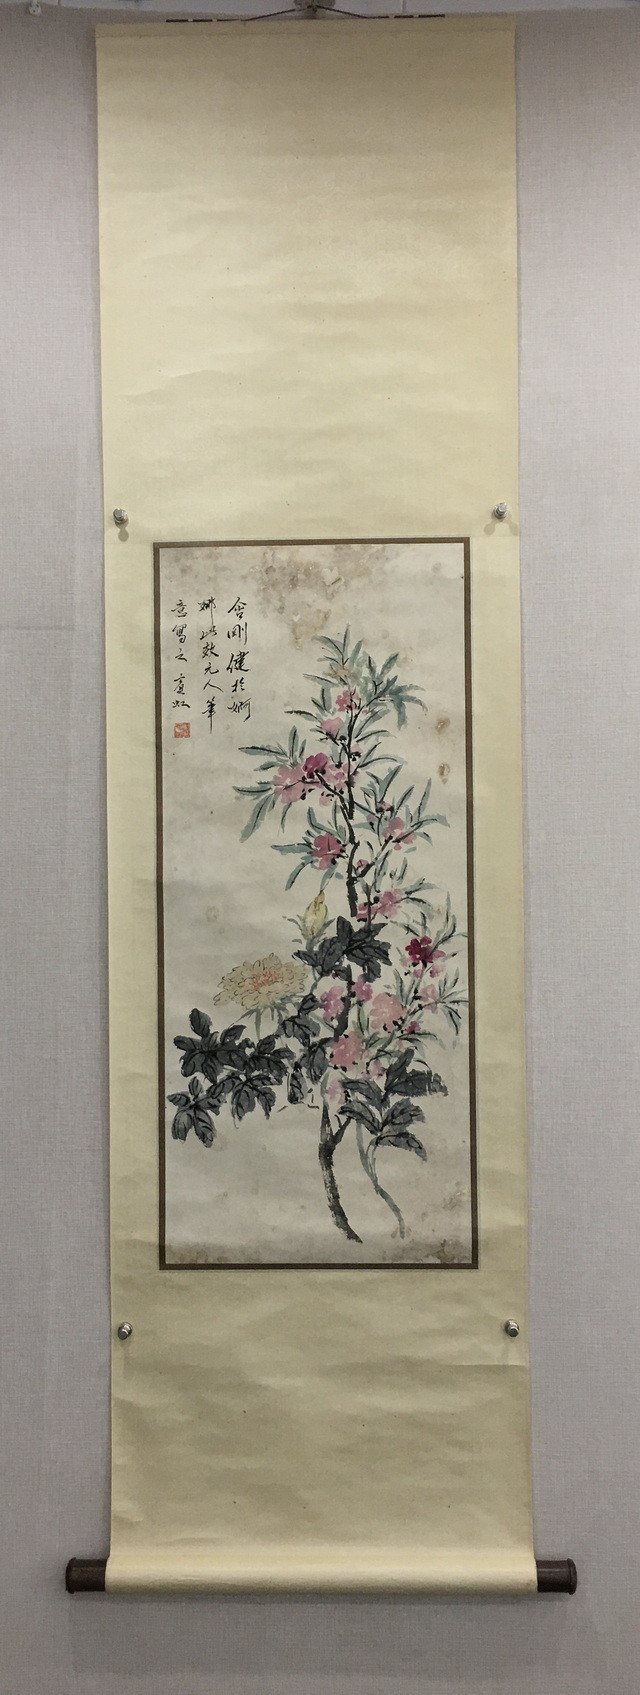 含剛健於婀
娜此效元人筆
意寫之賓虹